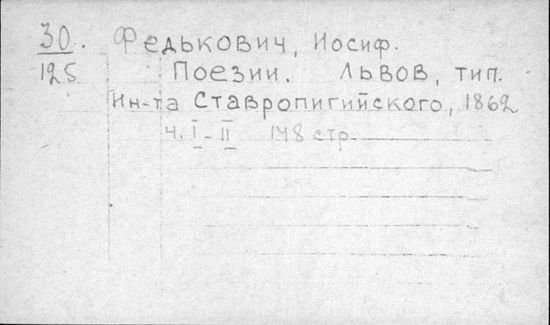 30. Федькович, Иосиф.
125 Поезии. Львов, тип.
Ин-та Ставропигийского, 1862
ч. I-II 148 стр.